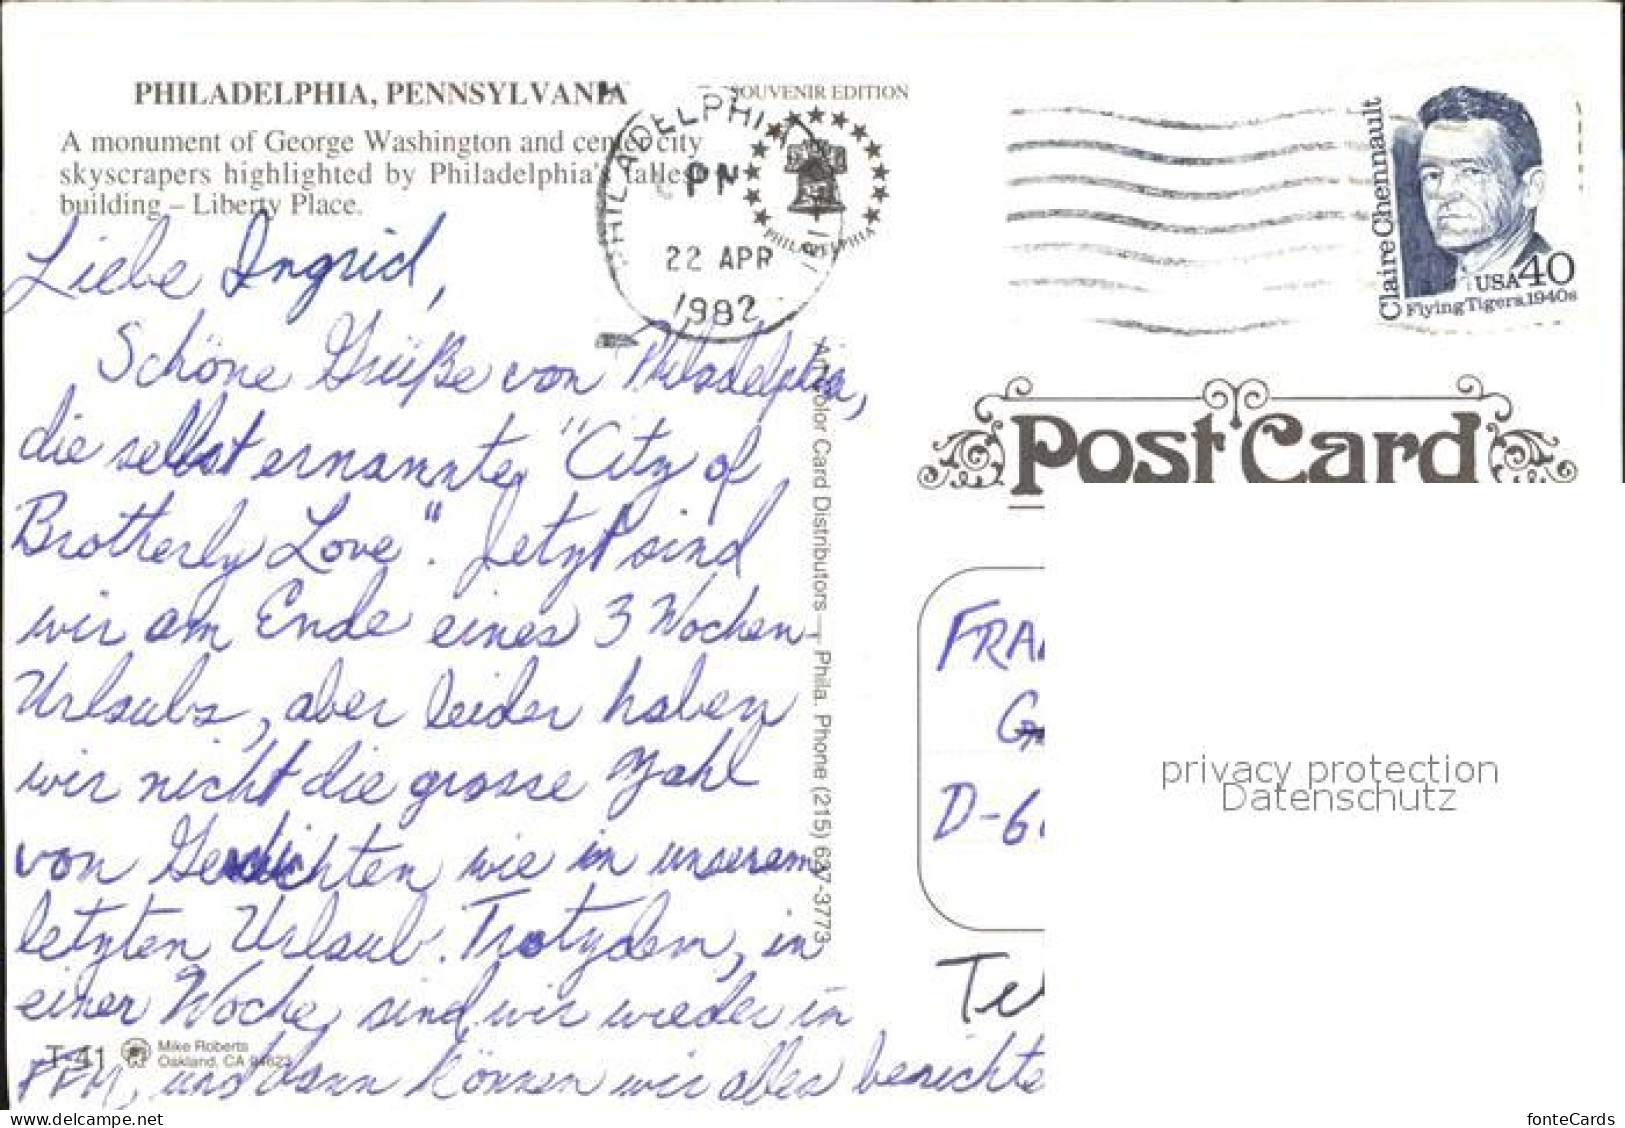 PHILADELPHIA, PENNSYLVANIA
A monument of George Washington and center city
skyscrapers highlighted by Philadelphia's tallest
building – Liberty Place.
SOUVENIR EDITION
PHILADELPHIA
PM
22 APR
1992
PHILADELPHIA
Claire Chennault
USA 40
Flying Tigers, 1940s
Post Card
Liebe Ingrid,
Schöne Grüße von Philadelphia,
die selbst ernannte "City of
Brotherly Love". Jetzt sind
wir am Ende eines 3 Wochen-
Urlaubs, aber leider haben
wir nicht die grosse Zahl
von Geschichten wie in unserem
letzten Urlaub. Trotzdem, in
einer Woche sind wir wieder in
FFM, und dann können wir alles berichte
Art Color Card Distributors — Phila. Phone (215) 637-3773
T-41
Mike Roberts
Oakland, CA 94623
FRA
D-6
privacy protection
Datenschutz
www.delcampe.net
fonteCards